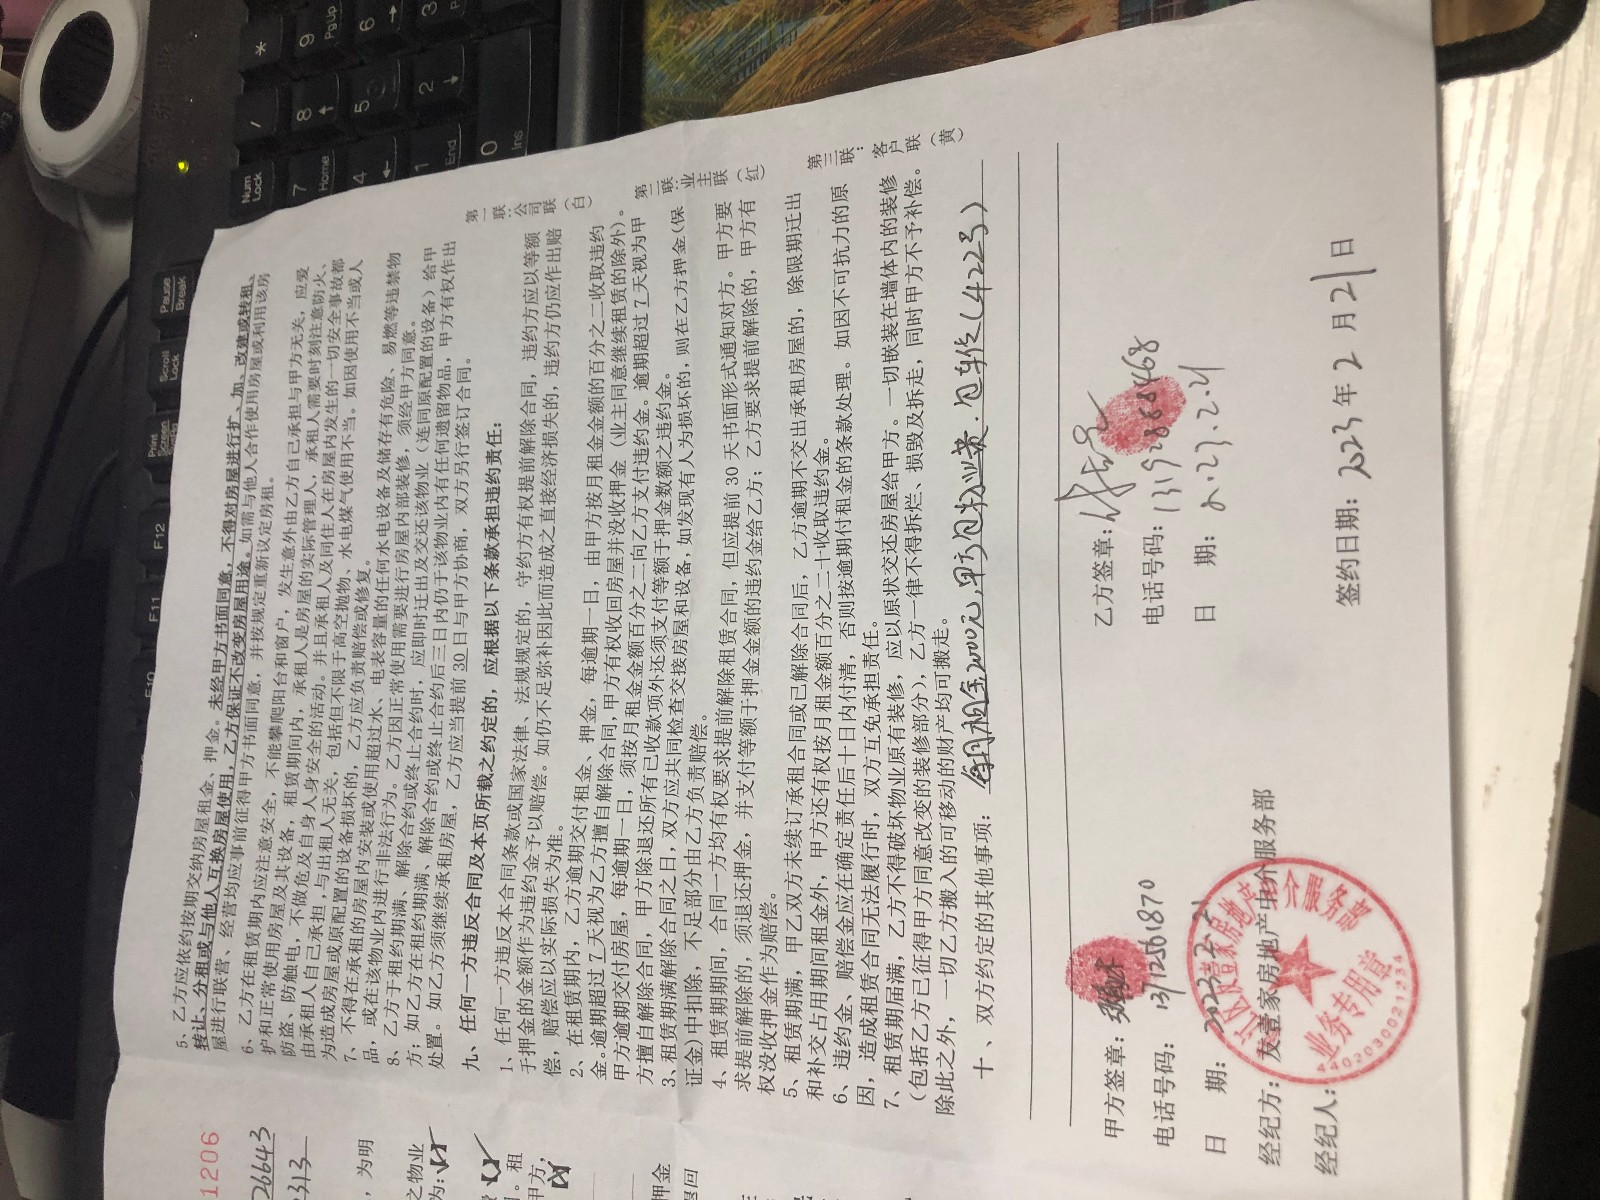 5、乙方应依约按期交纳房屋租金、押金。未经甲方书面同意，不得对房屋进行扩、加、改建或转租、
转让、分租或与他人互换房屋使用，乙方保证不改变房屋用途。如需与他人合作使用房屋或利用该房
屋进行联营、经营均应事前征得甲方书面同意，并按规定重新议定房租。
6、乙方在租赁期内应注意安全，不能攀爬阳台和窗户，发生意外由乙方自己承担与甲方无关，应爱
护和正常使用房屋及其设备，租赁期间内，承租人是房屋的实际管理人，承租人需要时刻注意防火、
防盗、防触电，不做危及自身人身安全的活动。并且承租人及同住人在房屋内发生的一切安全事故都
由承租人自己承担，与出租人无关，包括但不限于高空抛物、水电煤气使用不当。如因使用不当或人
为造成房屋或原配置的设备损坏的，乙方应负责赔偿或修复。
7、不得在承租的房屋内安装或使用超过水、电表容量的任何水电设备及储存有危险、易燃等违禁物
品，或在该物业内进行非法行为。乙方因正常使用需要进行房屋内部装修，须经甲方同意。
8、乙方于租约期满、解除合约或终止合约时，应即时迁出及交还该物业（连同原配置的设备）给甲
方；如乙方在租约期满、解除合约或终止合约后三日内仍于该物业内有任何遗留物品，甲方有权作出
处置。如乙方须继续承租房屋，乙方应当提前 30 日与甲方协商，双方另行签订合同。
九、任何一方违反合同及本页所载之约定的，应根据以下条款承担违约责任：
1、任何一方违反本合同条款或国家法律、法规规定的，守约方有权提前解除合同，违约方应以等额
于押金的金额作为违约金予以赔偿。如仍不足弥补因此而造成之直接经济损失的，违约方仍应作出赔
偿，赔偿应以实际损失为准。
2、在租赁期内，乙方逾期交付租金、押金，每逾期一日，由甲方按月租金金额的百分之二收取违约
金。逾期超过 7 天视为乙方擅自解除合同，甲方有权收回房屋并没收押金（业主同意继续租赁的除外）。
甲方逾期交付房屋，每逾期一日，须按月租金金额百分之二向乙方支付违约金。逾期超过 7 天视为甲
方擅自解除合同，甲方除退还所有已收款项外还须支付等额于押金数额之违约金。
3、租赁期满解除合同之日，双方应共同检查交接房屋和设备，如发现有人为损坏的，则在乙方押金（保
证金）中扣除，不足部分由乙方负责赔偿。
4、租赁期期间，合同一方均有权要求提前解除租赁合同，但应提前 30 天书面形式通知对方。甲方要
求提前解除的，须退还押金，并支付等额于押金金额的违约金给乙方；乙方要求提前解除的，甲方有
权没收押金作为赔偿。
5、租赁期满，甲乙双方未续订承租合同或已解除合同后，乙方逾期不交出承租房屋的，除限期迁出
和补交占用期间租金外，甲方还有权按月租金额百分之二十收取违约金。
6、违约金、赔偿金应在确定责任后十日内付清，否则按逾期付租金的条款处理。如因不可抗力的原
因，造成租赁合同无法履行时，双方互免承担责任。
7、租赁期届满，乙方不得破坏物业原有装修，应以原状交还房屋给甲方。一切嵌装在墙体内的装修
（包括乙方已征得甲方同意改变的装修部分），乙方一律不得拆烂、损毁及拆走，同时甲方不予补偿。
除此之外，一切乙方搬入的可移动的财产均可搬走。
十、双方约定的其他事项：每月租金2000元，甲方包物业费.包车位(422号)
第一联：公司联（白）
第二联：业主联（红）
第三联：客户联（黄）
甲方签章：
电话号码：13112561870
日 期：2023.2.21
经纪方：友壹家房地产中介服务部
经纪人：
乙方签章：
电话号码：13192888468
日 期：2.23.2.21
签约日期：2023年2月21日
友壹家房地产中介服务部
业务专用章
4402030021234
1206
26643
2313
，为明
之物业
为：
。租
甲方，
押金
退回
Num Lock
/
*
7 Home
8
9 PgUp
4
5
6
1 End
2
3
0 Ins
Pause Break
Scroll Lock
Print Screen SysRq
F12
F11
F10